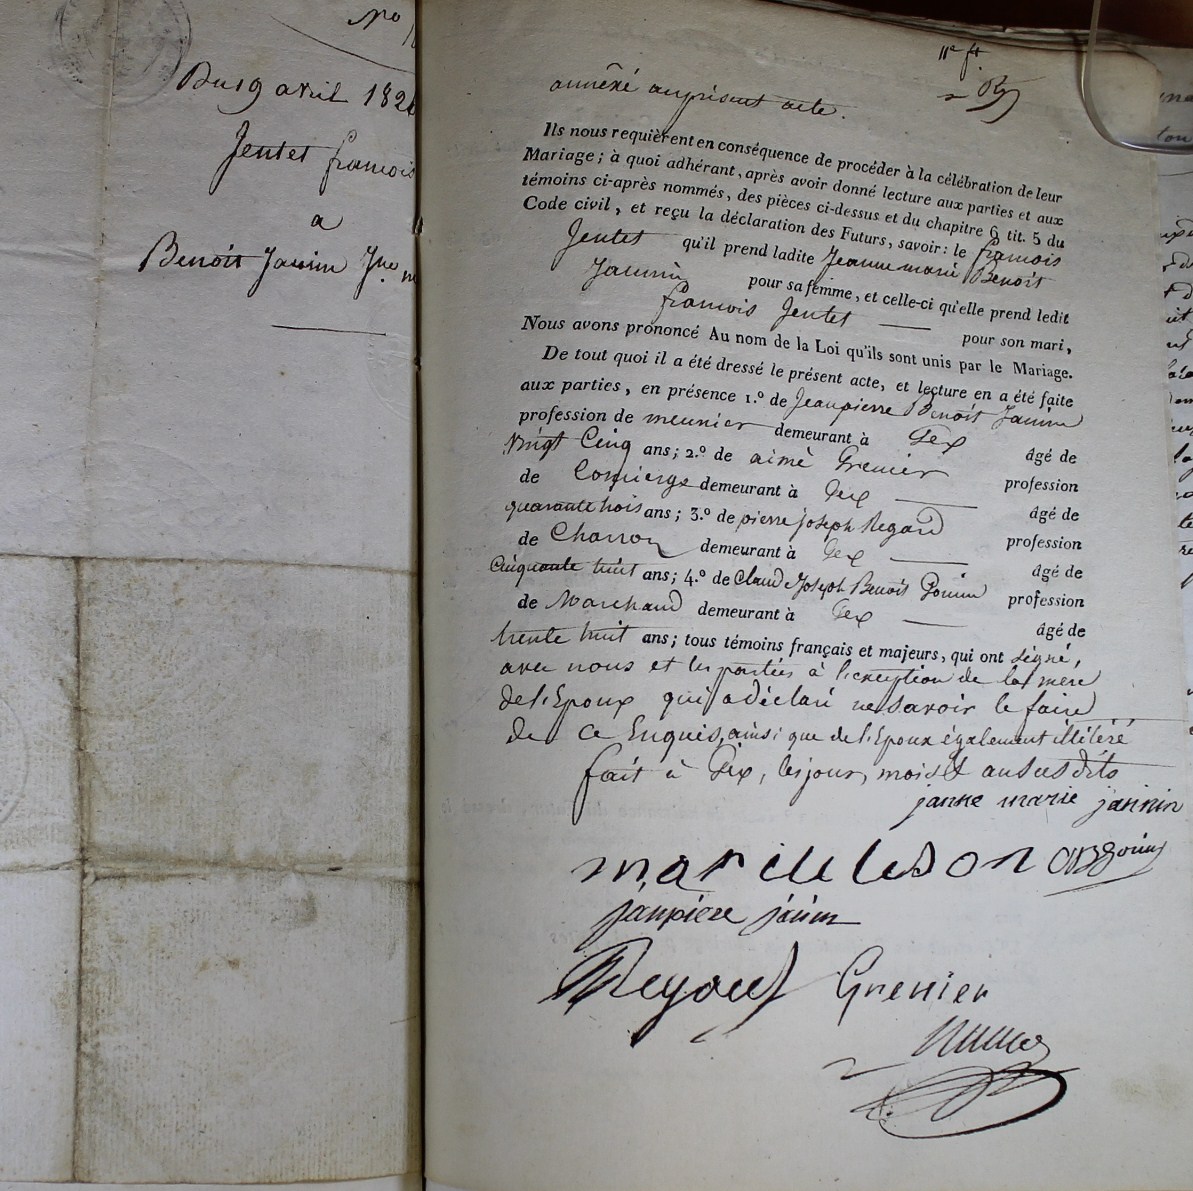 No
Du 19 avril 182
Jentet francois
a
Benoit Jannin Jne
annéxé au présent acte.
Ils nous requièrent en conséquence de procéder à la célébration de leur
Mariage ; à quoi adhérant, après avoir donné lecture aux parties et aux
témoins ci-après nommés, des pièces ci-dessus et du chapitre 6 tit. 5 du
Code civil, et reçu la déclaration des Futurs, savoir : le francois
Jentet qu'il prend ladite Jeanne marie Benoit
Jannin pour sa femme, et celle-ci qu'elle prend ledit
francois Jentet pour son mari,
Nous avons prononcé Au nom de la Loi qu'ils sont unis par le Mariage.
De tout quoi il a été dressé le présent acte, et lecture en a été faite
aux parties, en présence 1.º de Jeanpierre Benoit Jannin
profession de meunier demeurant à Gex âgé de
vingt Cinq ans ; 2.º de aimé Grenier profession
de Concierge demeurant à Gex âgé de
quarante trois ans ; 3.º de pierre joseph Regard profession
de Charron demeurant à Gex âgé de
Cinquante huit ans ; 4.º de Claud Joseph Benoit Gonin profession
de Marchand demeurant à Gex âgé de
trente huit ans ; tous témoins français et majeurs, qui ont signé,
avec nous et les parties à l'exception de la mere
de l'Epoux qui a déclaré ne savoir le faire
de ce Enquis, ainsi que de l'Epoux également illétéré
fait à Gex, les jour, mois et an susdits
janne marie jannin
janpiere janin
Grenier